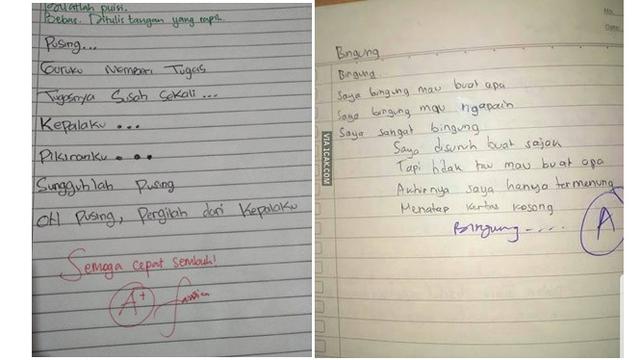 Buatlah puisi.
Bebas. Ditulis tangan yang rapi.
Pusing...
Guruku Memberi Tugas
Tugasnya Susah Sekali ...
Kepalaku ...
Pikiranku ...
Sungguhlah Pusing
Oh Pusing, Pergilah dari Kepalaku
Semoga cepat sembuh!
A+
No.
Date
Bingung
Bingung
Saya bingung mau buat apa
Saya bingung mau ngapain
Saya sangat bingung
Saya disuruh buat sajak
Tapi tidak tau mau buat apa
Akhirnya saya hanya termenung
Menatap kertas kosong
Bingung ....
A
VIA 1CAK.COM